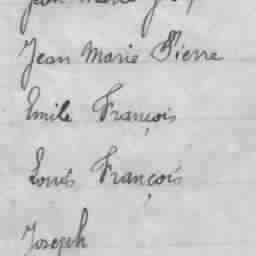 Jean Marie
Jean Marie Pierre
Emile François
Louis François
Joseph